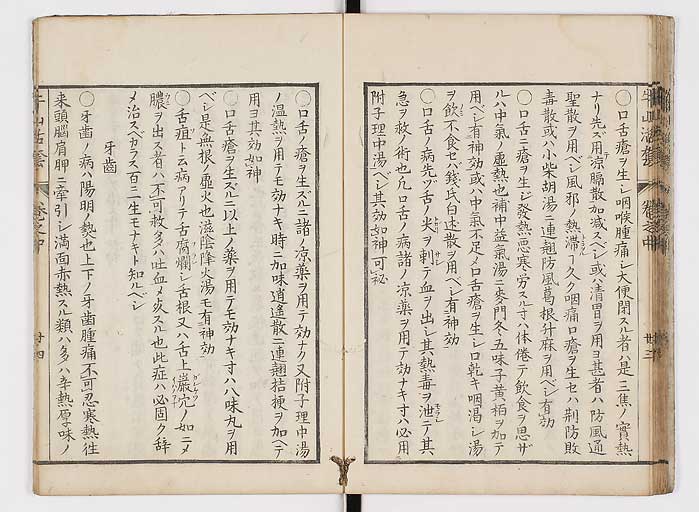 〇口舌瘡ヲ生シ咽喉腫痛シ大便閉スル者ハ是三焦ノ實熱
ナリ先ズ用涼膈散加減スベシ或ハ清胃ヲ用ヨ甚者ハ防風通
聖散ヲ用ベシ風邪ノ熱滯ヿ久ク咽痛口瘡ヲ生セハ荊防敗
毒散或ハ小柴胡湯ニ連翹防風葛根升麻ヲ用ベシ有効
〇口舌ニ瘡ヲ生シ發熱悪寒労スル寸ハ体倦テ飲食ヲ思ザ
ルハ中氣ノ虚熱也補中益氣湯ニ麥門冬五味子黄栢ヲ加テ
用ベシ有神効或ハ中氣不足メ口舌瘡ヲ生シ口乾キ咽渇シ湯
ヲ飲不食セハ錢氏白朮散ヲ用ベシ有神効
〇口舌ノ病先ヅ舌ノ尖ヲ刺テ血ヲ出シ其熱毒ヲ泄テ其
急ヲ救ノ術也凡口舌ノ病諸ノ凉薬ヲ用テ効ナキ寸ハ必用
附子理中湯ベシ其効如神可秘
牛山活套 卷之中 廿三
〇口舌ノ瘡ヲ生ズルニ諸ノ凉薬ヲ用テ効ナク又附子理中湯
ノ温熱ヲ用テモ効ナキ時ニ加味逍遙散ニ連翹桔梗ヲ加ヘテ
用ヨ其効如神
〇口舌瘡ヲ生ズルニ以上ノ薬ヲ用テモ効ナキ寸ハ八味丸ヲ用
ベシ是無根ノ虚火也滋陰降火湯モ有神効
〇舌疽ト云病アリテ舌腐爛シ舌根又ハ舌上巖穴ノ如ニメ
膿ヲ出ス者ハ不可救多ハ吐血メ死スル也此症ハ必固ク辞
メ治スベカラス百ニ一生モナキト知ルベシ
牙齒
〇牙齒ノ病ハ陽明ノ熱也上下ノ牙齒腫痛不可忍寒熱徃
来頭脳肩胛ニ牽引シ満面赤熱スル類ハ多ハ辛熱厚味ノ
牛山活套 卷之中 廿四